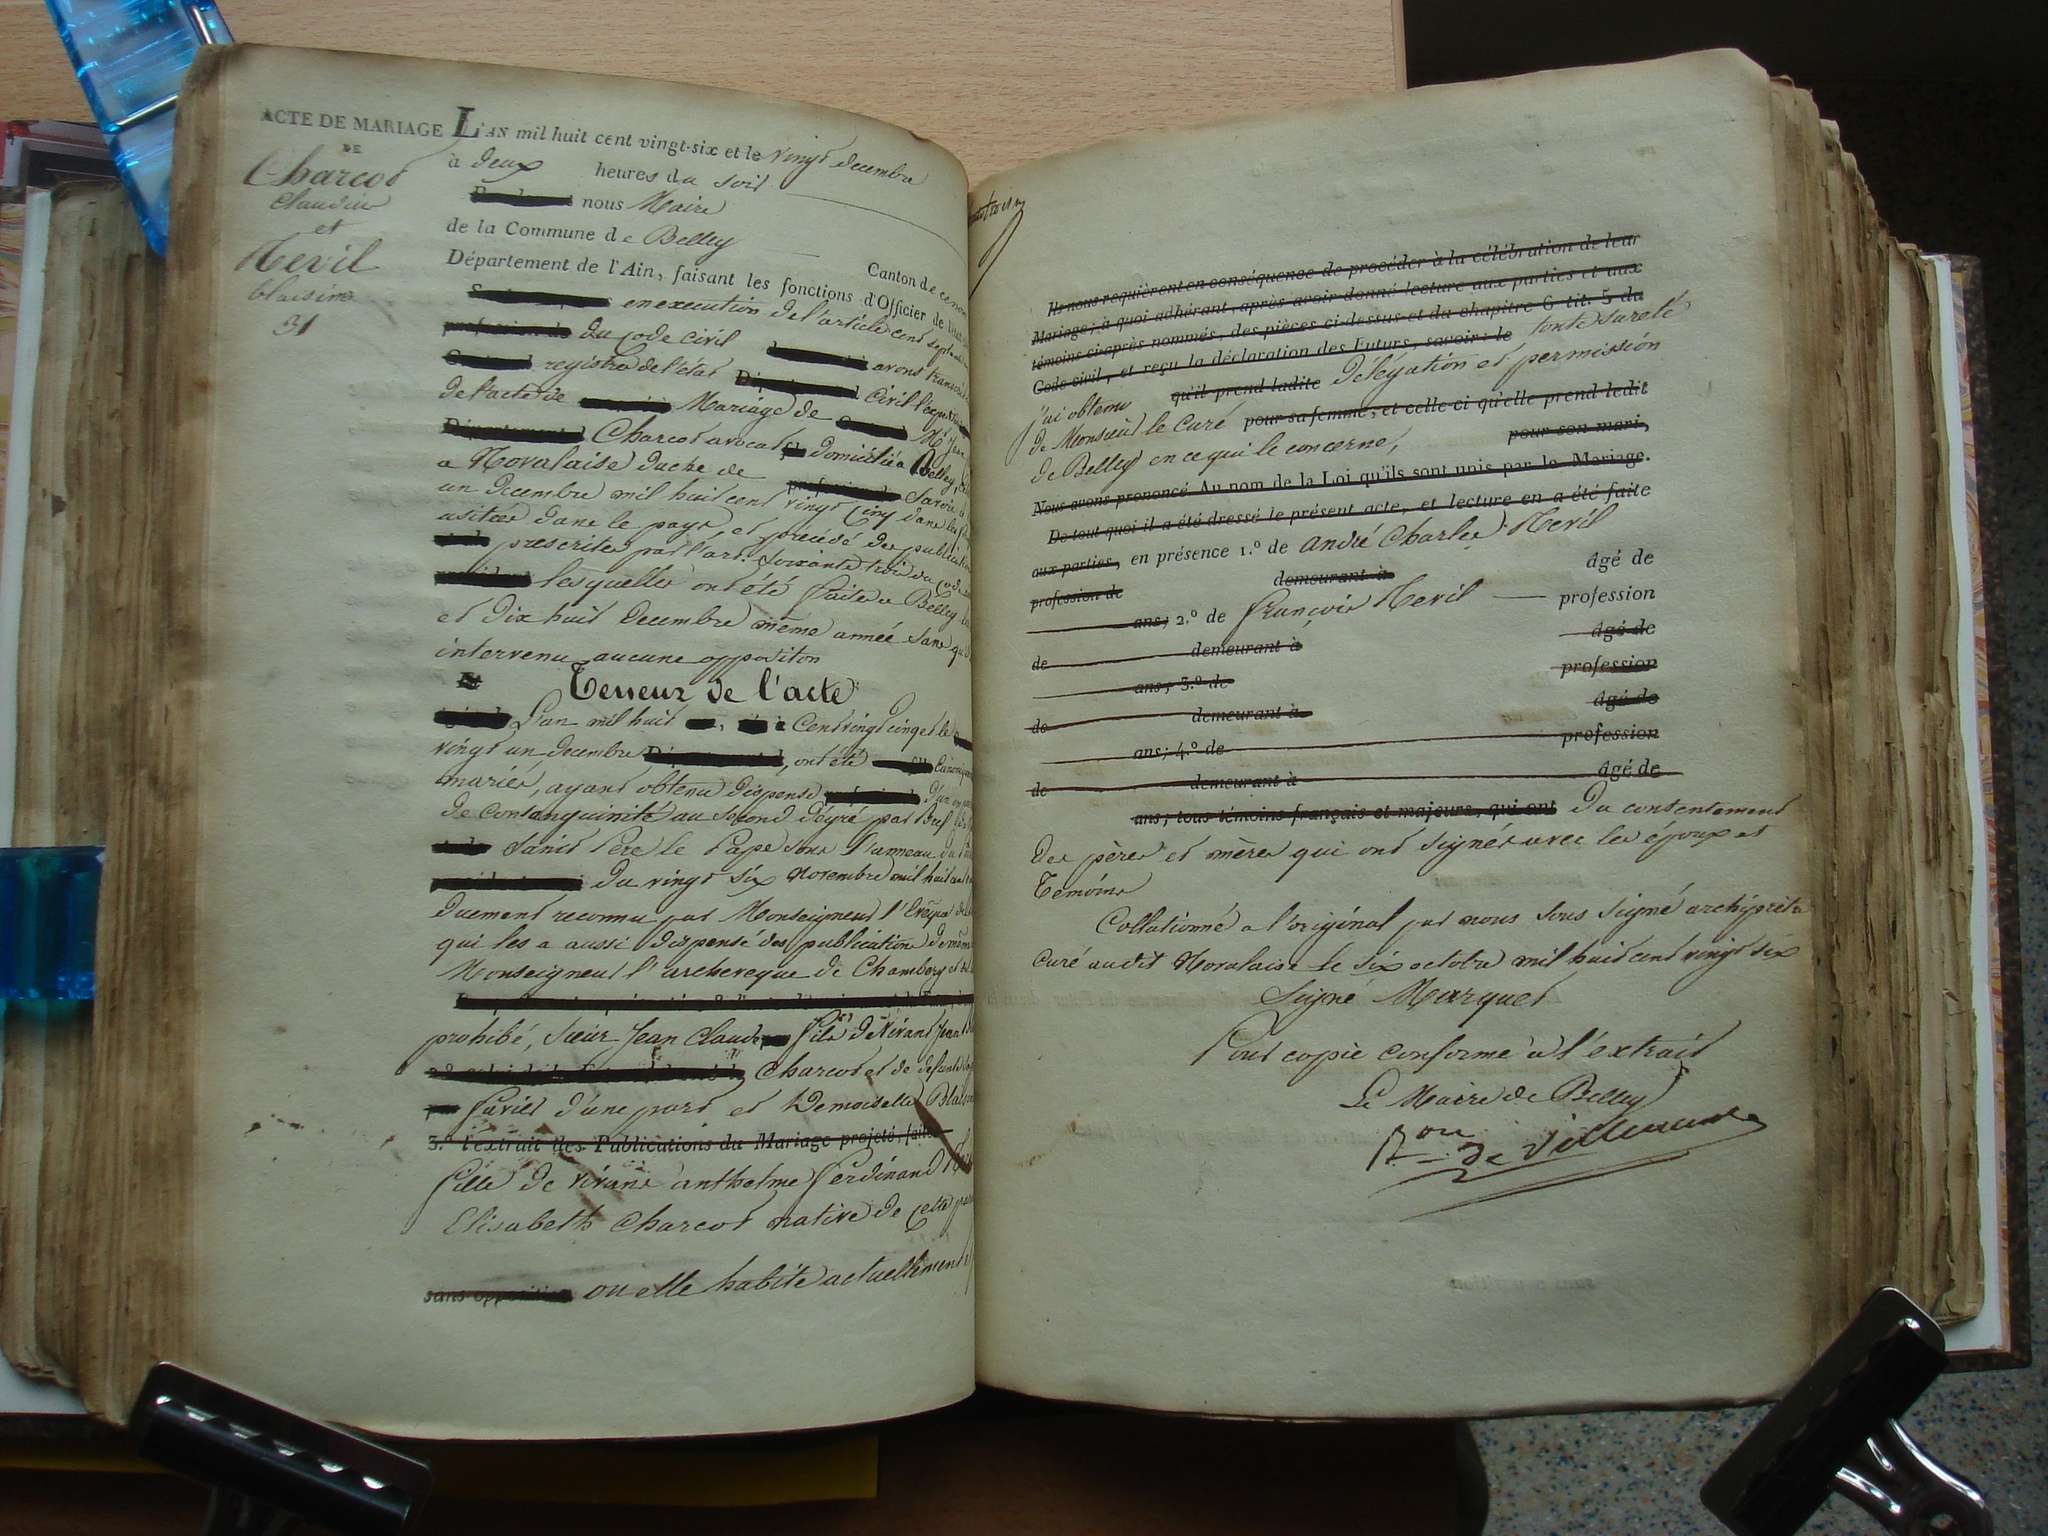 ACTE DE MARIAGE
DE
Charcot
Claudine
et
Revil
blaisine
31
L'AN mil huit cent vingt-six et le vingt decembre
à deux heures du soir
nous Maire
de la Commune de Belley Canton de
Département de l'Ain, faisant les fonctions d'Officier de
en execution de l'article cent
du code civil avons
registres de l'état civil
de l'acte de Mariage de Mr
Charcot avocat domicilié a Belley,
a Novalaise duché de Savoie
un decembre mil huit cent vingt cinq dans les
usitées dans le pays, et précédé des
prescrites par l'art. soixante trois du code
lesquelles ont été faites a Belley
et dix huit decembre même année sans
intervenu aucune oppositon
Teneur de l'acte
L'an mil huit cent vingt cinq et le
vingt un decembre, ont été
mariés, ayant obtenu dispense
de consanguinité au second dégré par bref
Saint Père le Pape sous l'anneau du
du vingt six novembre mil huit cent
duement reconnu par Monseigneur l'Evêque de
qui les a aussi dispensé des publications de même
Monseigneur l'archeveque de Chambery et
prohibé, sieur Jean Claude fils de vivant Jean
Charcot et de defunte
favier d'une part et Demoiselle
3.º l'extrait des Publications du Mariage projeté, faite
fille de vivans anthelme ferdinand
Elisabeth Charcot native de cette
sans opposition ou elle habite actuellement
Ils nous requièrent en conséquence de procéder à la célébration de leur
Mariage; à quoi adhérant, après avoir donné lecture aux parties et aux
témoins ci-après nommés, des pièces ci-dessus et du chapitre 6 tit. 5 du
Code civil, et reçu la déclaration des Futurs, savoir: le toute sureté
j'ai obtenu qu'il prend ladite délégation et permission
de Monsieur le Curé pour sa femme, et celle-ci qu'elle prend ledit
de Belley en ce qui le concerne, pour son mari,
Nous avons prononcé Au nom de la Loi qu'ils sont unis par le Mariage.
De tout quoi il a été dressé le présent acte, et lecture en a été faite
aux parties, en présence 1.º de andré Charles Revil
profession de demeurant à agé de
ans; 2.º de françois Revil profession
de demeurant à agé de
ans; 3.º de profession
de demeurant à agé de
ans; 4.º de profession
de demeurant à agé de
ans; tous témoins français et majeurs, qui ont du consentement
des pères et mères qui ont signés avec les époux et
Temoins
Collationné a l'original par nous sous signé archiprêtre
curé audit Novalaise le six octobre mil huit cent vingt six
Signé Marquet
Pour copie conforme a l'extrait
Le Maire de Belley